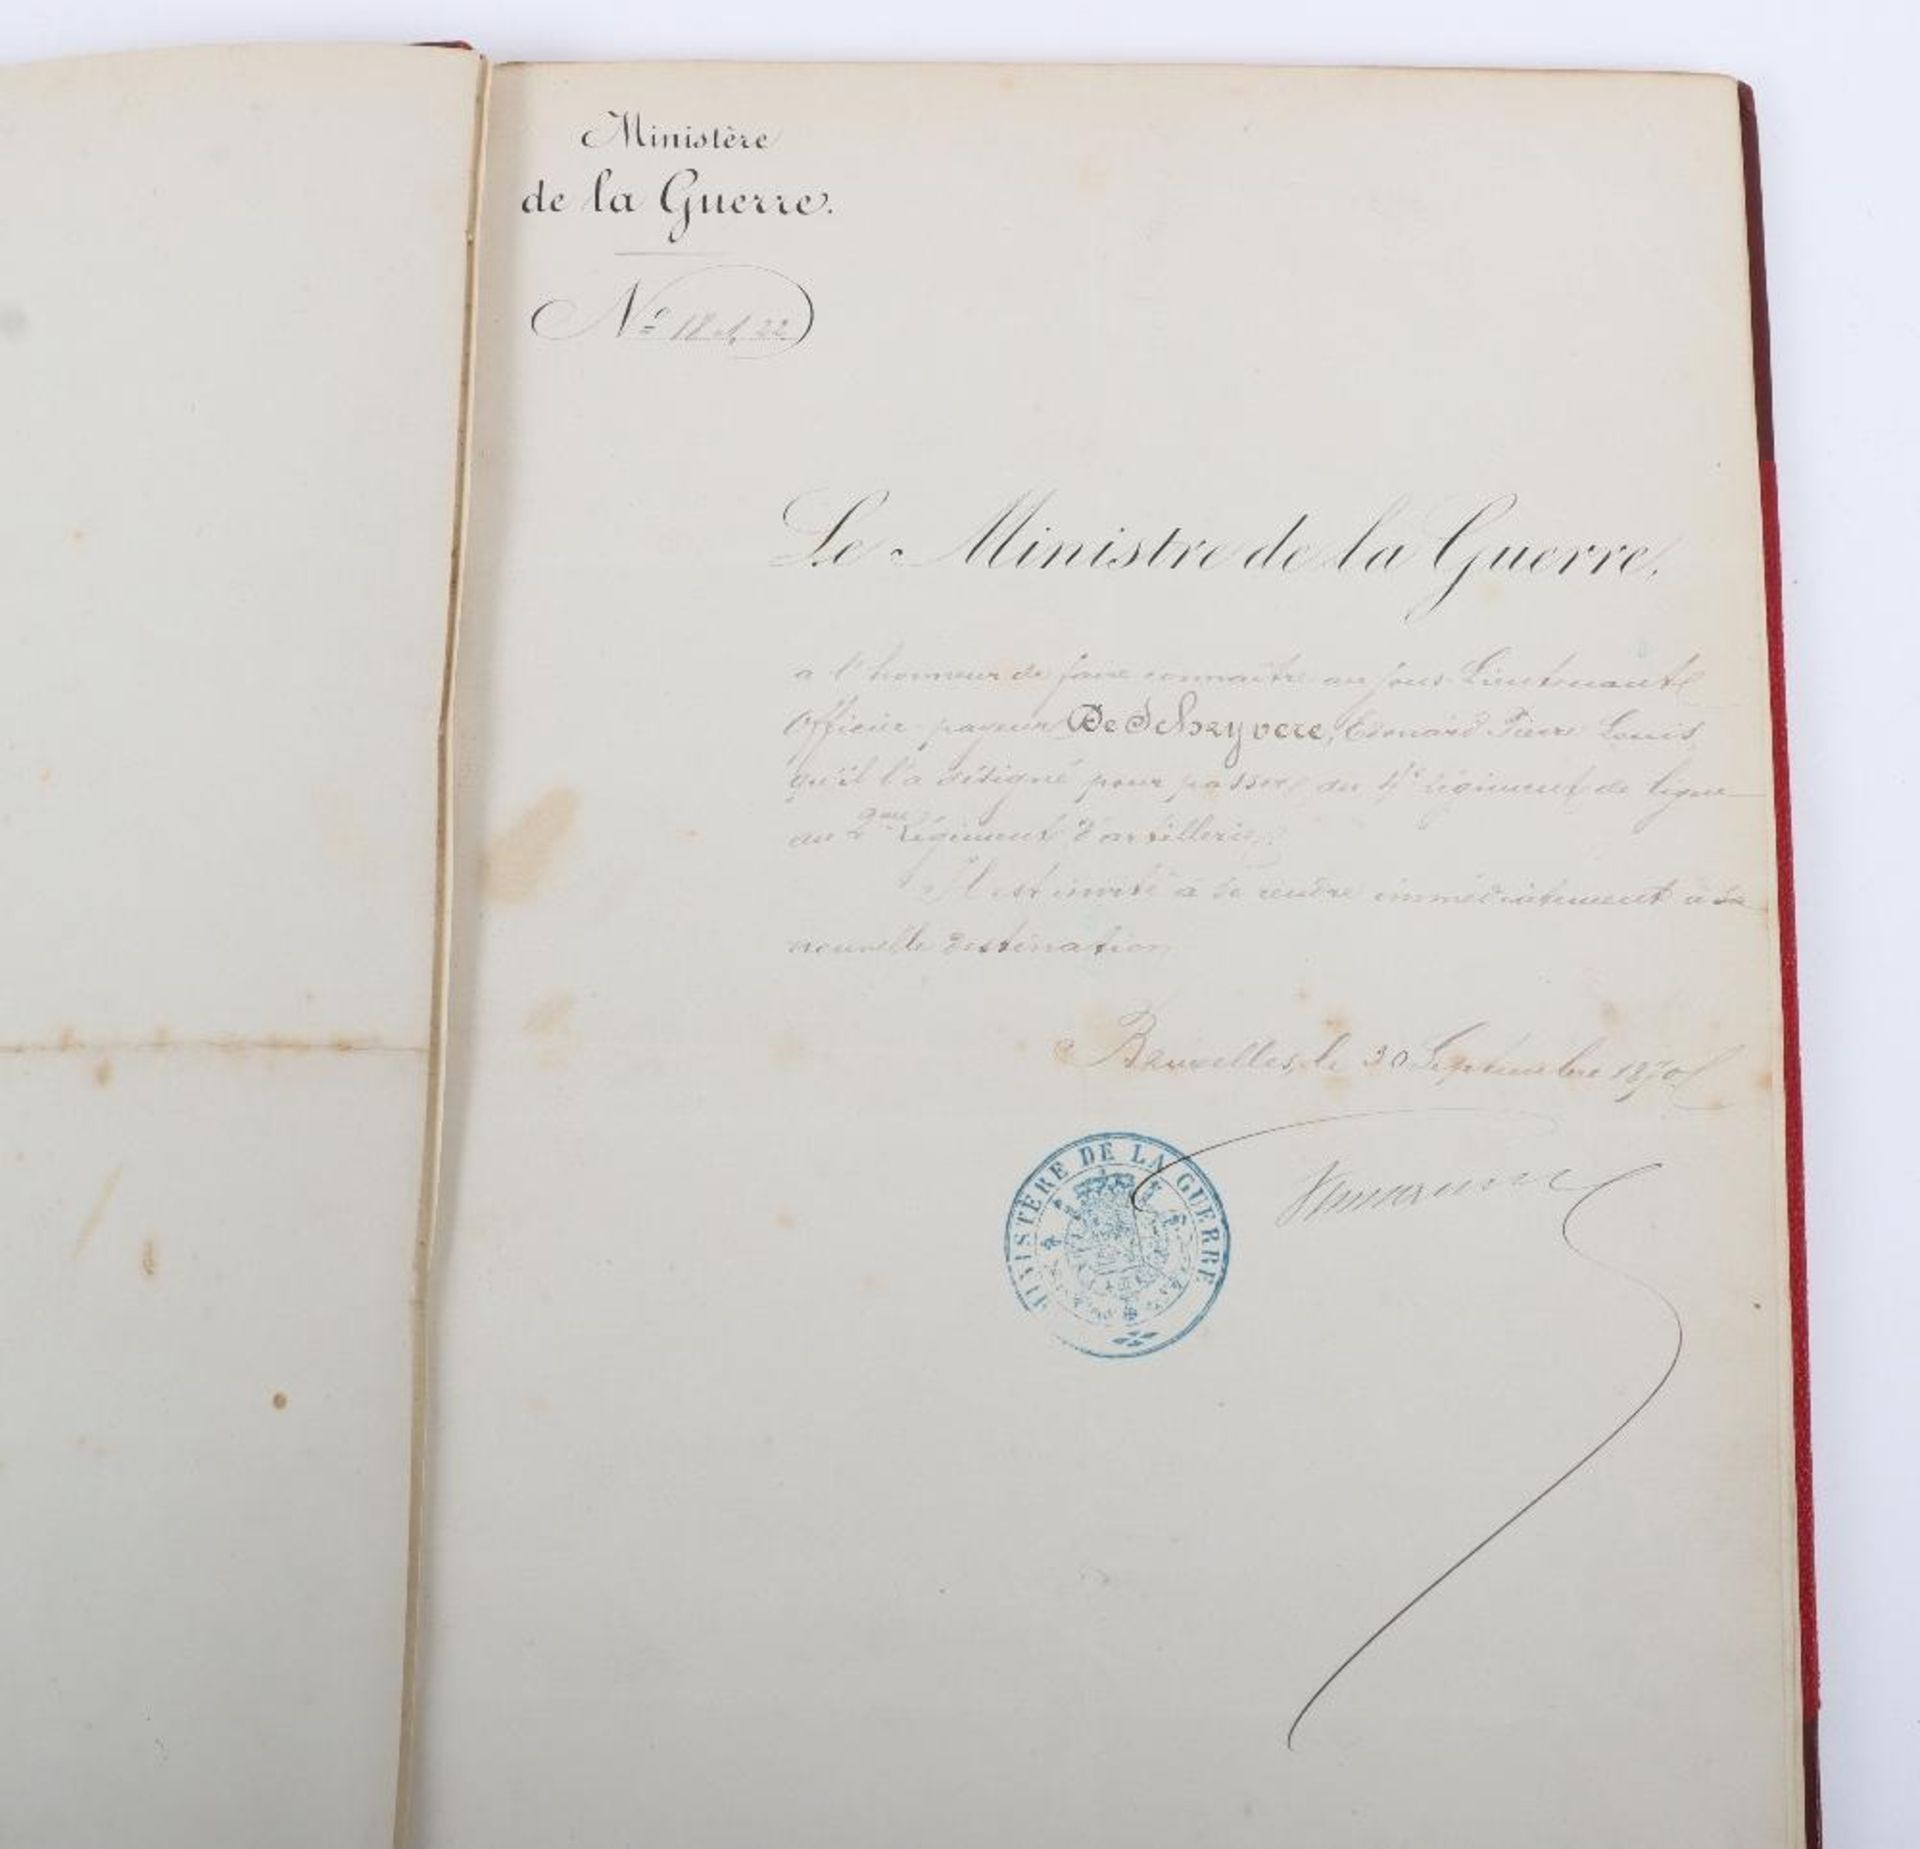 Ministère
de la Guerre.
No
Le Ministre de la Guerre,
a l'honneur de faire connaître au Sous-Lieutenant
Officier-payeur De Schryvere, Edouard Pierre Louis
qu'il l'a désigné pour passer du 4e régiment de ligne
au 2me Régiment d'artillerie.
Il est invité à se rendre immédiatement à sa
nouvelle destination
Bruxelles, le 30 Septembre 1870
MINISTÈRE DE LA GUERRE